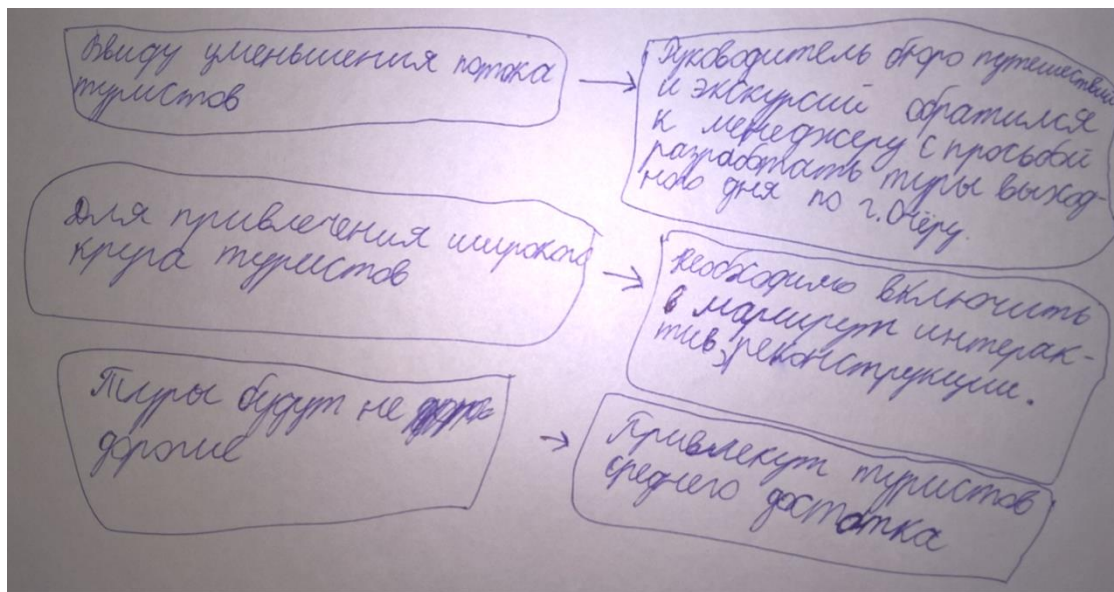 Ввиду уменьшения потока
туристов
Руководитель бюро путешествий
и экскурсий обратился
к менеджеру с просьбой
разработать туры выход-
ного дня по г. Очёру.
Для привлечения широкого
круга туристов
Необходимо включить
в маршрут интерак-
тив, реконструкции.
Туры будут не
дорогие
Привлекут туристов
среднего достатка